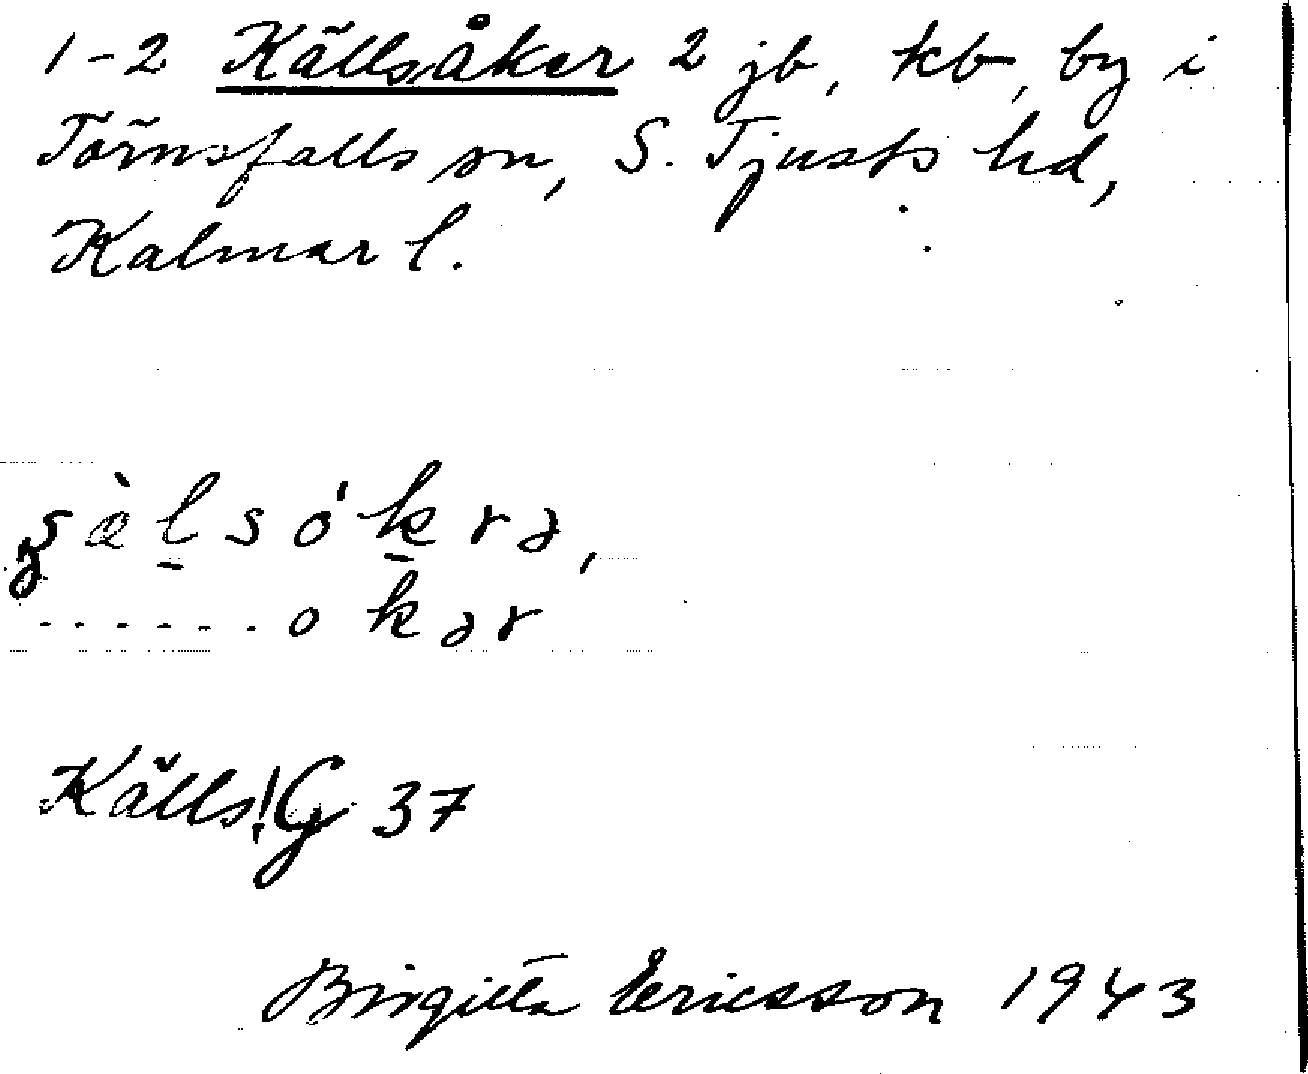 1-2 Källsåker 2 jb, kb, by i
Törnsfalls sn, S. Tjusts hd,
Kalmar l.
o k ə r
Källs! G 37
Birgitta Ericsson 1943